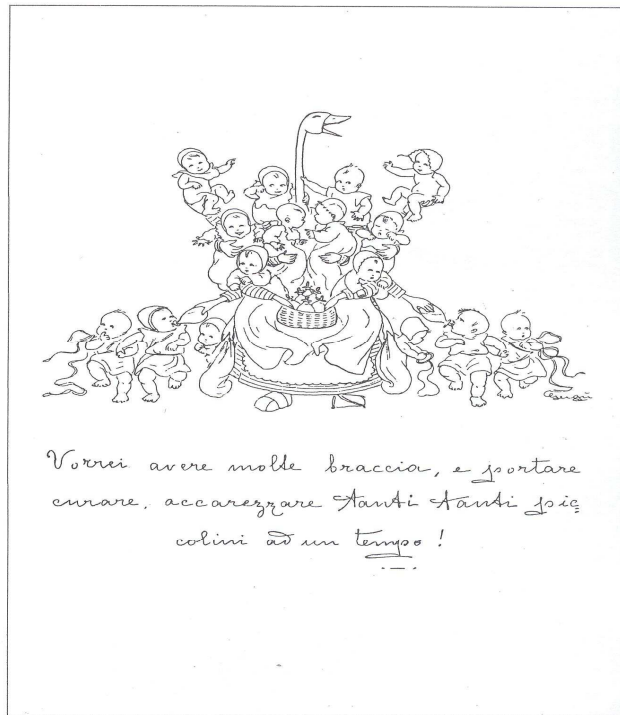 Vorrei avere molte braccia, e portare
curare, accarezzare tanti tanti pic=
colini ad un tempo!